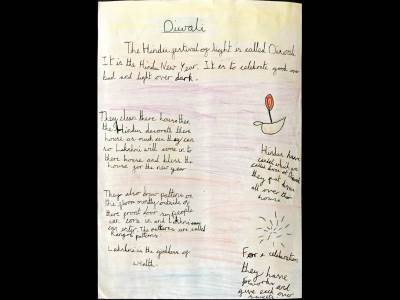 Diwali
The Hindu festival of light is called Diwali
It is the Hindu New Year. It is to celebrate good over
bad and light over dark.
They clean there house then
the Hindus decorate there
house as much as they can
so Lakshmi will come in to
there house and bless the
house for the new year
They also draw patterns on
the floor mostly outside of
there front door so people
can come in and Lakshmi
can enter. The patterns are called
Rangoli patterns.
Lakshmi is the goddess of
wealth.
Hindus have
they put
all over the
house
For a celebration
they have
fireworks and
give each over
sweets